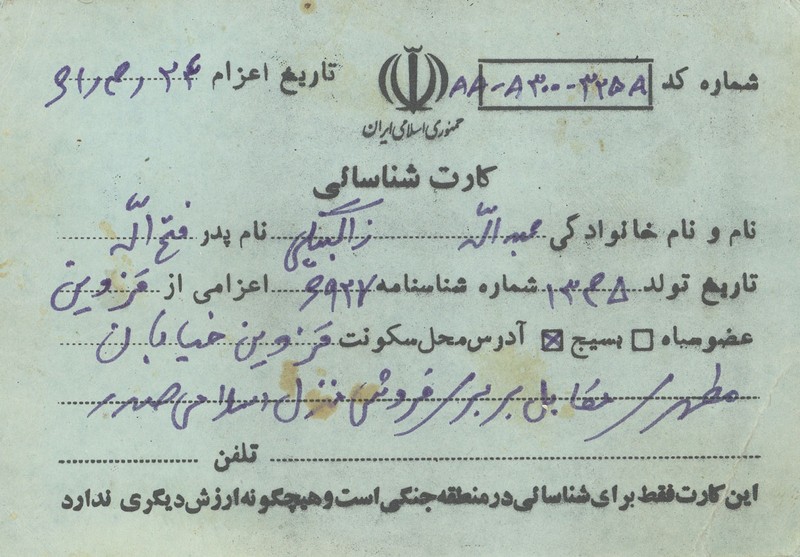 شماره کد ۸۸-۸۳۰۰-۳۲۵۸ تاریخ اعزام
جمهوری اسلامی ایران
کارت شناسائی
نام و نام خانوادگی عبداله نام پدر فتح اله
تاریخ تولد شماره شناسنامه اعزامی از قزوین
عضو سپاه بسیج آدرس محل سکونت قزوین خیابان
مطهری مقابل بربری فروشی منزل
تلفن
این کارت فقط برای شناسائی در منطقه جنگی است و هیچگونه ارزش دیگری ندارد